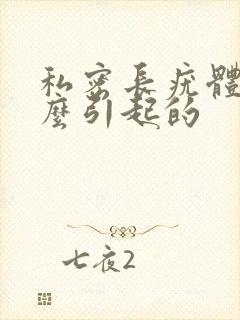 私密長疣體
麼引起的
七夜2